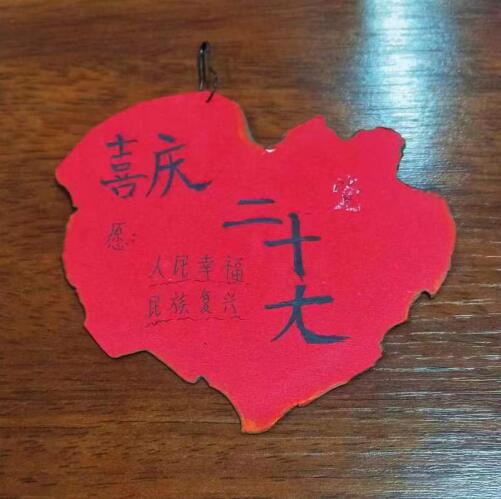 喜庆
二十大
愿:
人民幸福
民族复兴